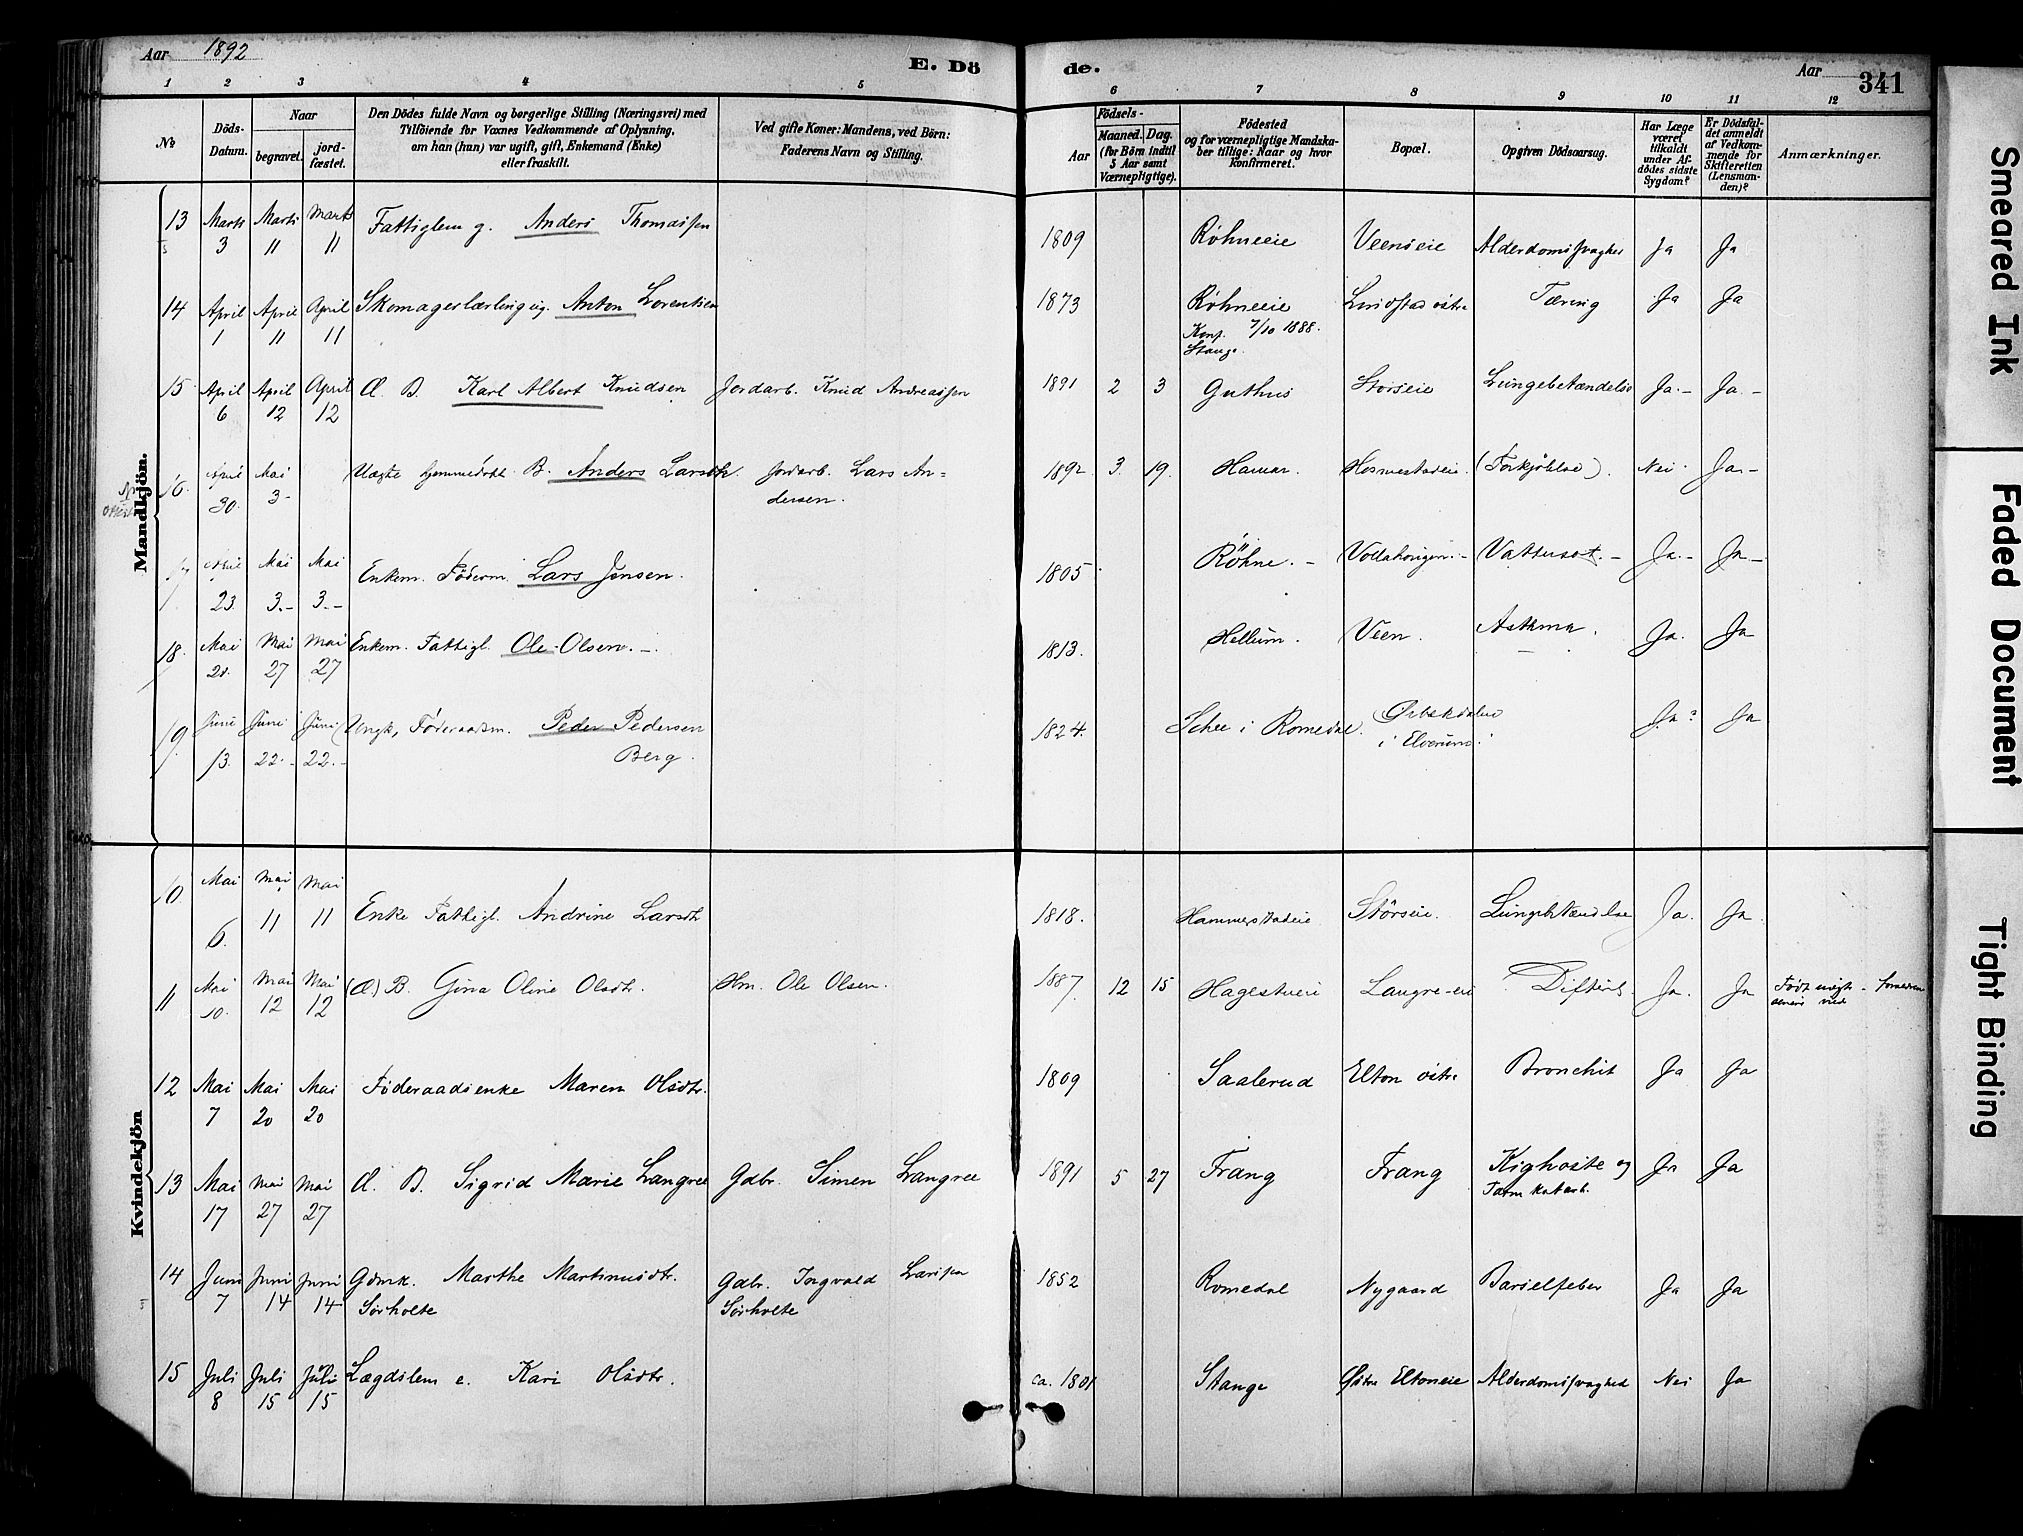 Aar 1892
E. Dö
de.
Aar
341
1 2 3 4 5 6 7 8 9 10 11 12
No
Döds-
Datum.
Naar
begravet.
jord-
fæstet.
Den Dödes fulde Navn og borgerlige Stilling (Næringsvei) med
Tilföiende for Voxnes Vedkommende af Oplysning,
om han (hun) var ugift, gift, Enkemand (Enke)
eller fraskilt.
Ved gifte Koner: Mandens, ved Börn:
Faderens Navn og Stilling.
Födsels-
Aar
Maaned.
Dag.
(for Börn indtil
5 Aar samt
Værnepligtige).
Födested
og for værnepligtige Mandska-
ber tillige: Naar og hvor
konfirmeret.
Bopæl.
Opgiven Dödsaarsag.
Har Læge
været
tilkaldt
under Af-
dödes sidste
Sygdom?
Er Dödsfal-
det anmeldt
af Vedkom-
mende for
Skifteretten
(Lensman-
den)?
Anmærkninger.
Mandkjön.
13 Marts 3 Marts 11 Marts 11 Fattiglem g. Anders Thomassen 1809 Røhneeie Veenseie Alderdomssvaghed Ja Ja
14 April 1 April 11 April 11 Skomagerlærling ug. Anton Lorentsen 1873 Røhneeie Lindstad østre Tæring Ja Ja
Konf. 7/10 1888.
Stange.
15 April 6 April 12 April 12 Æ. B. Karl Albert Knudsen Jordarb. Knud Andreassen 1891 2 3 Guthus Storseie Lungebetændelse Ja.- Ja.-
16. April 30. Mai 3- Uægte hjemmedøbt B. Anders Larss. Jordarb. Lars An-
dersen. 1892 3. 19. Hamar. (Forkjølelse). Nei. Ja-
17 April 23. Mai 3.- Mai 3.- Enkem. Föderm. Lars Jensen. 1805 Röhne.- Vattersot.- Ja.- Ja-
18. Mai Mai 27 Mai 27 Enkem. Fattigl. Ole Olsen.- 1813. Hellum. Veen. Asthma. Ja. Ja
19. Juni 13. Juni 22.- Juni 22.- Ungk, Föderaadsm. Peder Pedersen
Berg. 1824. Schee i Romedal.
i Elverum. Ja? Ja
Kvindekjön
10 Mai 6. Mai 11 Mai 11 Enke Fattigl. Andrine Larsdtr 1818. Hammerstadeie Störseie. Lungebetændelse Ja. Ja.
11 Mai 10. Mai 12 Mai 12 (Æ) B. Gina Oline Olsdtr. Hm. Ole Olsen. 1887. 12 15 Hagestueeie Langre-eie Difteri. Ja. Ja Født uægte -
12 Mai 7 Mai 20 Mai 20 Føderaadsenke Maren Olsdtr. 1809 Saalerud Elton østre Bronchit Ja Ja
13 Mai 17 Mai 27 Mai 27 Æ. B. Sigrid Marie Langree Gdbr. Simen Langree 1891 5 27 Frang Frang Kighoste og
Tarmkatarrh. Ja Ja
14 Juni 7 Juni 14 Juni 14 Gdmk. Marthe Martinusdtr.
Sørholte Gdbr. Ingvald Larssen
Sørholte 1852 Romedal Nygaard Barselfeber Ja Ja
15 Juli 8 Juli 15 Juli 15 Lægdslem e. Kari Olsdtr. ca. 1801 Stange Østre Eltoneie Alderdomssvaghed Nei Ja
Smeared Ink
Faded Document
Tight Binding